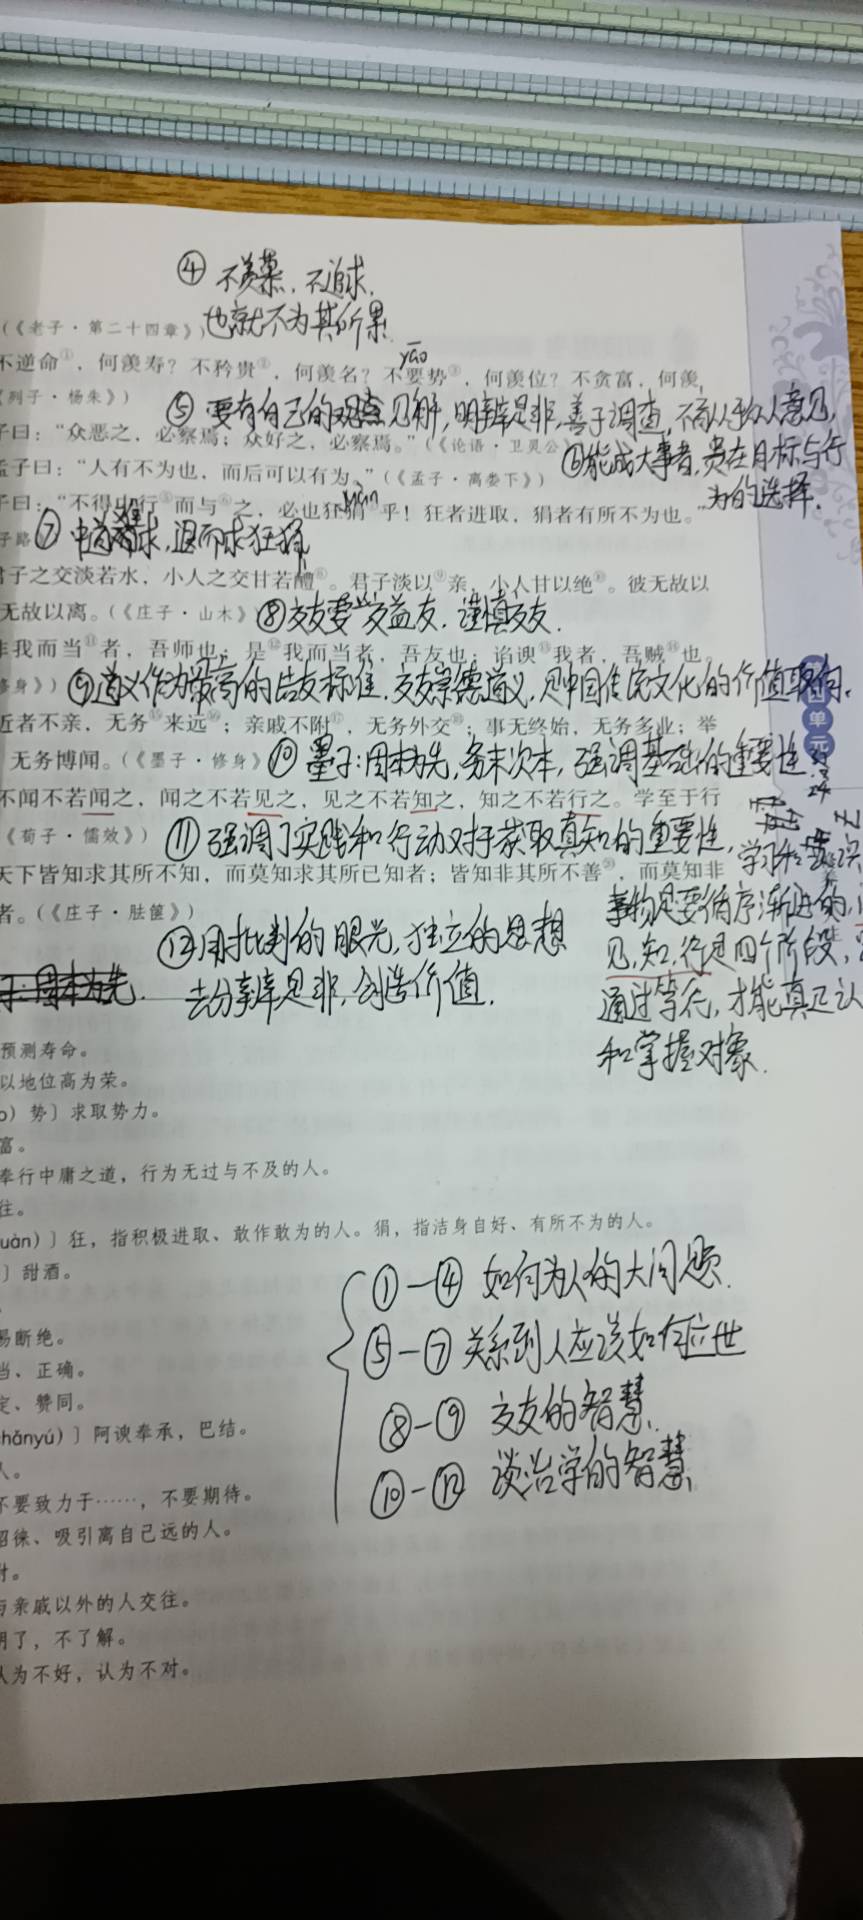 ④ 不羡慕、不追求,
也就不为其所累
(《老子·第二十四章》)
yāo
不逆命①,何羡寿?不矜贵②,何羡名?不要势③,何羡位?不贪富,何羡
列子·杨朱》)
⑤ 要有自己的观点见解,明辨是非,善于调查,不盲从于众人意见,
子曰:“众恶之,必察焉;众好之,必察焉。”(《论语·卫灵公
⑥能成大事者,贵在目标与行
为的选择.
孟子曰:“人有不为也,而后可以有为。”(《孟子·离娄下》)
子曰:“不得中行⑤而与⑥之,必也狂狷乎!狂者进取,狷者有所不为也。”
juàn
子路
⑦ 中道难求,退而求狂狷
君子之交淡若水,小人之交甘若醴⑧。君子淡以⑨亲,小人甘以绝⑩。彼无故以
无故以离。(《庄子·山木》)
⑧交友要交益友,谨慎交友.
非我而当⑪者,吾师也;是⑫我而当者,吾友也;谄谀⑬我者,吾贼⑭也。
修身》)
⑨道义作为最高的结友标准,交友崇德道义,见中国传统文化的价值取向.
近者不亲,无务⑮来远⑯;亲戚不附⑰,无务外交⑱;事无终始,无务多业;举
无务博闻。(《墨子·修身》)
⑩ 墨子:固本为先,务末次本,强调基础的重要性
不闻不若闻之,闻之不若见之,见之不若知之,知之不若行之。学至于行
《荀子·儒效》)
⑪ 强调了实践和行动对于获取真知的重要性,
学习和认识
事物是要循序渐进的,
见,知,行是四个阶段,
通过笃行,才能真正认
和掌握对象.
天下皆知求其所不知,而莫知求其所已知者;皆知非其所不善⑳,而莫知非
者。(《庄子·胠箧》)
⑫用批判的眼光,独立的思想
去分辨是非,创造价值.
单元
预测寿命。
以地位高为荣。
o)势〕求取势力。
富。
奉行中庸之道,行为无过与不及的人。
往。
uàn)〕狂,指积极进取、敢作敢为的人。狷,指洁身自好、有所不为的人。
〕甜酒。
易断绝。
当、正确。
定、赞同。
hǎnyú)〕阿谀奉承,巴结。
人。
不要致力于……,不要期待。
招徕、吸引离自己远的人。
付。
与亲戚以外的人交往。
明了,不了解。
认为不好,认为不对。
①—④ 如何为人的大问题.
⑤—⑦关系到人应该如何应世
⑧—⑨ 交友的智慧
⑩—⑫ 谈治学的智慧